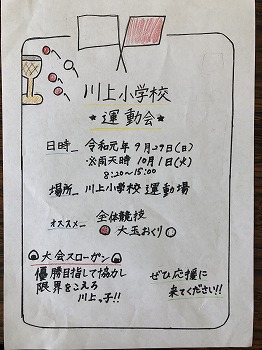 川上小学校
★運動会★
日時_ 令和元年9月29日(日)
※雨天時 10月1日(火)
8:20~15:00
場所_ 川上小学校 運動場
オススメ_ 全体競技
大玉おくり
大会スローガン
優勝目指して協力し
限界をこえろ
川上っ子!!
ぜひ応援に
来てください!!